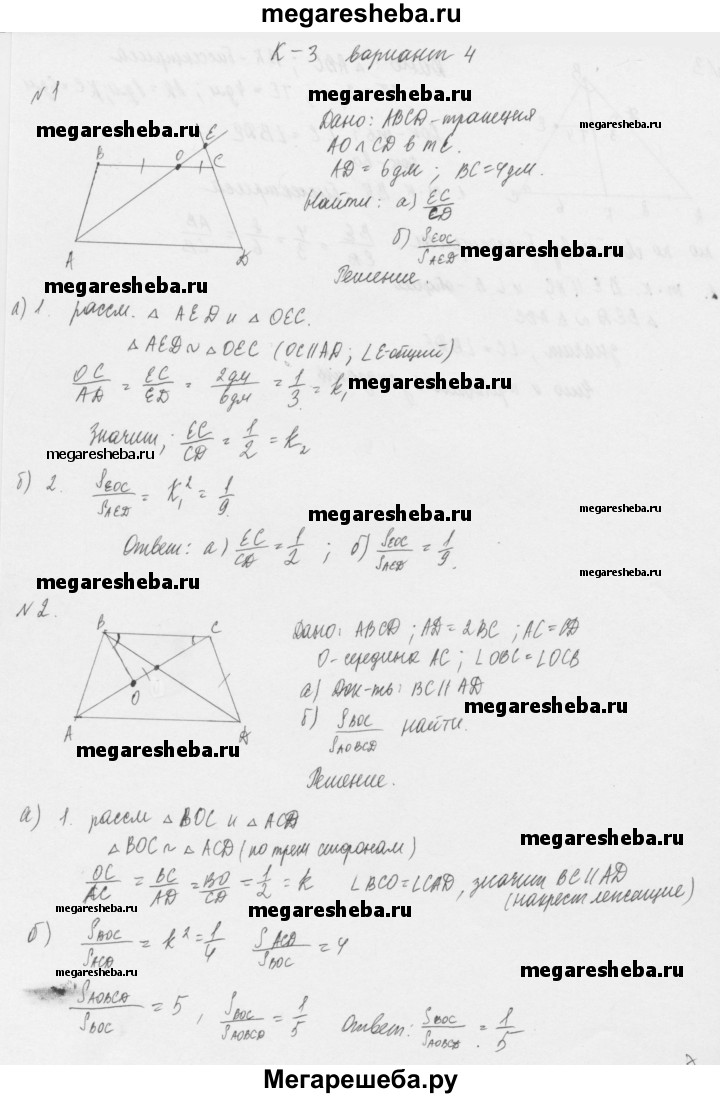 megaresheba.ru
К-3 вариант 4
№1
megaresheba.ru
megaresheba.ru
Дано: ABCD-трапеция
AO∩CD в т.E.
AD=6дм; BC=4дм.
Найти: а) EC/CD
б) S EOC/S AED
megaresheba.ru
Решение
megaresheba.ru
B O C E
A D
а) 1. рассм. △ AED и △ OEC.
△ AED ~ △ OEC (OC∥AD; ∠E-общий)
OC/AD = EC/ED = 2дм/6дм = 1/3 = k₁
megaresheba.ru
Значит, EC/CD = 1/2 = k₂
megaresheba.ru
megaresheba.ru
б) 2. S EOC/S AED = K₁² = 1/9.
megaresheba.ru
megaresheba.ru
Ответ: а) EC/CD = 1/2; б) S EOC/S AED = 1/9.
megaresheba.ru
megaresheba.ru
№2.
B C
O
A D
Дано: ABCD; AD=2BC; AC=2
O-середина AC; ∠OBC=∠OCB
а) Док-ть: BC∥AD
б) S BOC/S AOBCD найти.
megaresheba.ru
megaresheba.ru
Решение.
а) 1. рассм △ BOC и △ ACD
△ BOC ~ △ ACD (по трем сторонам)
megaresheba.ru
OC/AC = BC/AD = BO/CD = 1/2 = k ∠BCO=∠CAD, значит BC∥AD
(накрест лежащие)
megaresheba.ru
megaresheba.ru
б) S BOC/S ACD = k² = 1/4 S ACD/S BOC = 4
megaresheba.ru
megaresheba.ru
megaresheba.ru
S AOBCD/S BOC = 5, S BOC/S AOBCD = 1/5 Ответ: S BOC/S AOBCD = 1/5
Мегарешеба.ру